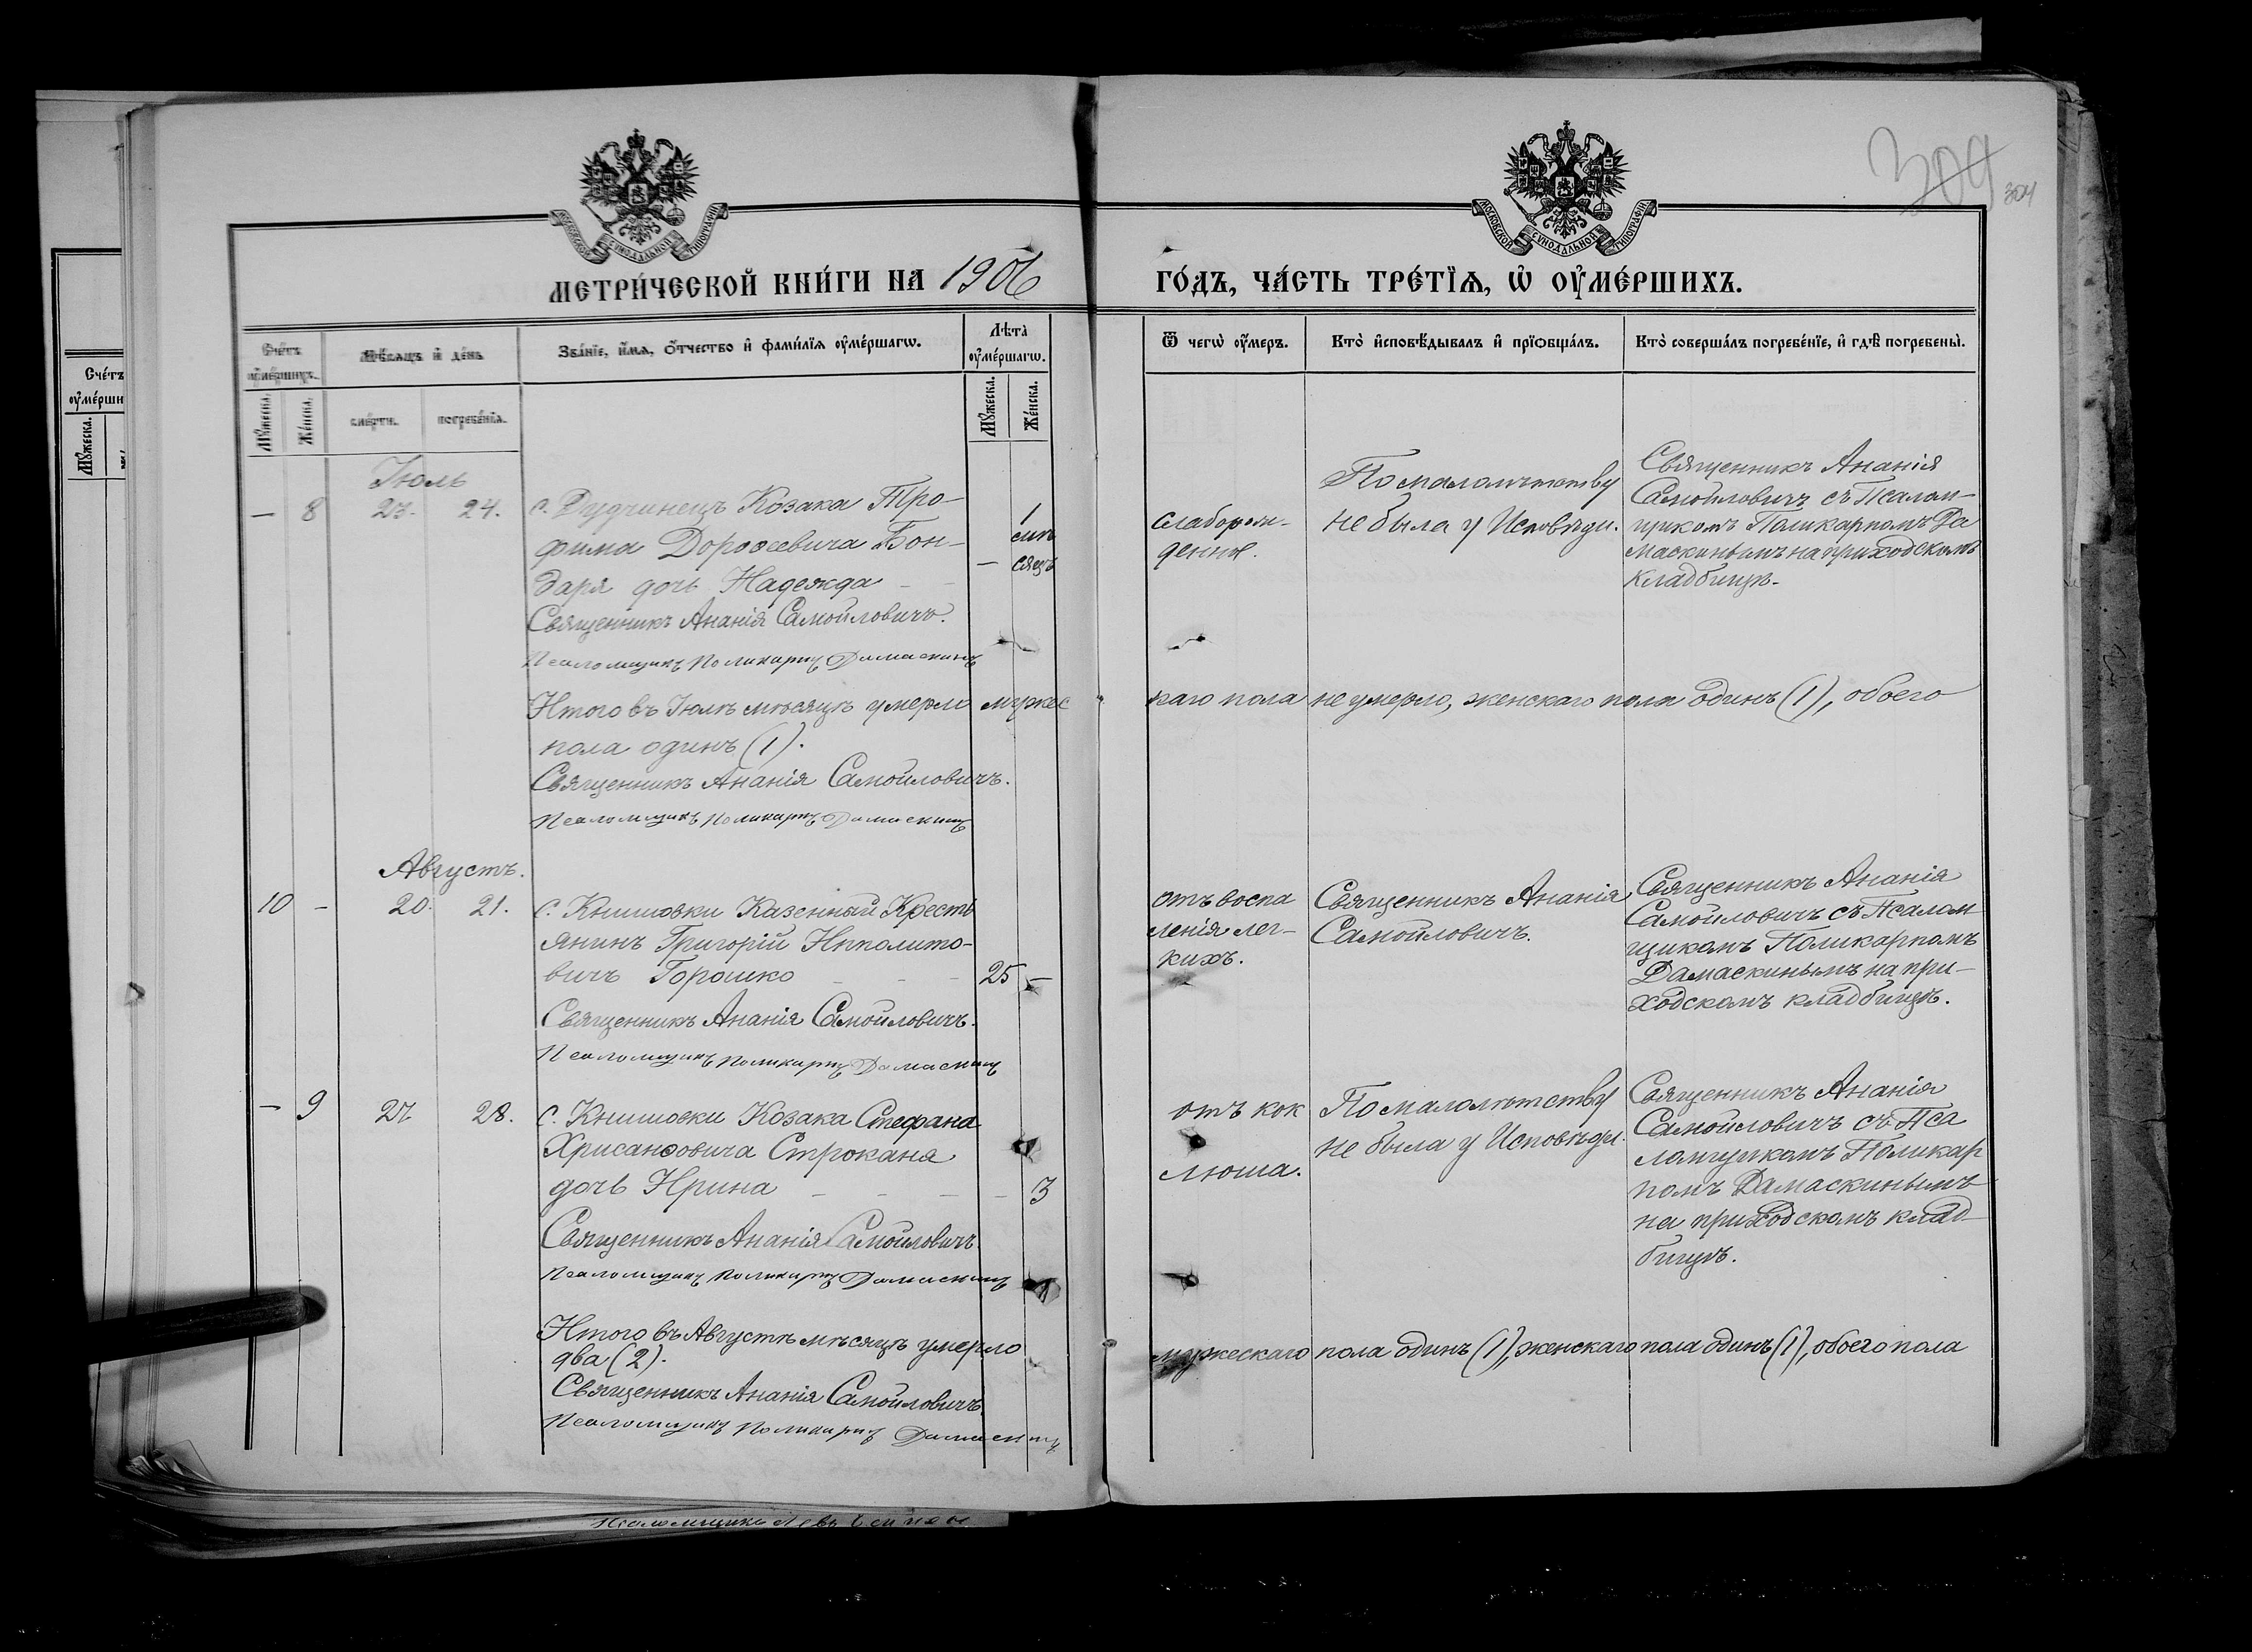 304
304
МОСКОВСКОЙ СѴНОДАЛЬНОЙ ТИПОГРАФІИ
МОСКОВСКОЙ СѴНОДАЛЬНОЙ ТИПОГРАФІИ
МЕТРИ́ЧЕСКОЙ КНИ́ГИ НА 1906
ГО́ДЪ, ЧА́СТЬ ТРЕ́ТЇѦ, Ѡ҆ ОУ҆МЕ́РШИХЪ.
Сче́тъ оу҆ме́ршихъ.
Мѣ́сѧцъ и҆ де́нь
Зва́нїе, и҆́мѧ, ѻ҆́тчество и҆ фами́лїѧ оу҆ме́ршагѡ.
Лѣта̀ оу҆ме́ршагѡ.
Ѿ чегѡ̀ оу҆́меръ.
Кто̀ и҆сповѣ́дывалъ и҆ прїѡбща́лъ.
Кто̀ соверша́лъ погребе́нїе, и҆ гдѣ̀ погребены̀.
Мꙋ́жеска.
Же́нска.
сме́рти.
погребе́нїѧ.
Мꙋ́жеска.
Же́нска.
Сче́тъ
оу҆ме́рши
Мꙋ́жеска.
Іюль
— 8 23. 24.
с. Дудчинецъ Козака Тро-
фима Дороѳеевича Бон-
даря дочь Надежда
Священникъ Ананія Самойловичъ.
Псаломщикъ Поликарпъ Дамаскинъ
1
— сяцъ
слаборож-
денія.
По малолѣтству
не была у Исповѣди.
Священникъ Ананія
Самойловичъ съ Псалом-
щикомъ Поликарпомъ Да
маскинымъ на приходскомъ
кладбищѣ.
Итого въ Іюлѣ мѣсяцѣ умерли мужес
каго пола не умерло, женскаго пола одинъ (1), обоего
пола одинъ (1).
Священникъ Ананія Самойловичъ.
Псаломщикъ Поликарпъ Дамаскинъ
Августъ.
10 — 20. 21.
с. Кнышовки Казенный Кресть
янинъ Григорій Ипполито-
вичъ Горошко
25 —
Священникъ Ананія Самойловичъ.
Псаломщикъ Поликарпъ Дамаскинъ
отъ воспа
ленія лег-
кихъ.
Священникъ Ананія
Самойловичъ.
Священникъ Ананія
Самойловичъ съ Псалом
щикомъ Поликарпомъ
Дамаскинымъ на при-
ходскомъ кладбищѣ.
— 9 27 28.
с. Кнышовки Козака Стефана
Хрисанѳовича Строканя
дочь Ирина
3
Священникъ Ананія Самойловичъ
Псаломщикъ Поликарпъ Дамаскинъ
отъ кок
люша.
По малолѣтству
не была у Исповѣди.
Священникъ Ананія
Самойловичъ съ Пса
ломщикомъ Поликар
помъ Дамаскинымъ
на приходскомъ клад-
бищѣ.
Итого въ Августѣ мѣсяцѣ умерло
мужескаго пола одинъ (1), женскаго пола одинъ (1), обоего пола
два (2).
Священникъ Ананія Самойловичъ.
Псаломщикъ Поликарпъ Дамаскинъ
Псаломщикъ